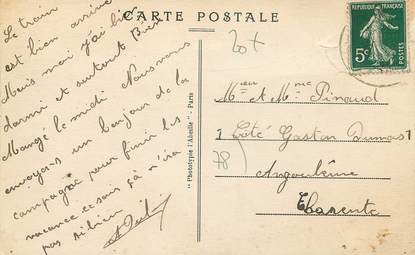 CARTE POSTALE
Le train
est bien arrivé
Mais moi j'ai bien
dormi et surtout Bien
Mangé le midi Nous nous
envoyons un bonjour de la
campagne pour finir les
vacance ce soir ça n'ira
pas si bien
20+
RÉPUBLIQUE FRANÇAISE
5c
POSTES
"Phototypie l'Abeille" - Paris
Mr et Mme Pinaud
1 Cité Gaston Dumas 1
78)
Angoulême
Charente